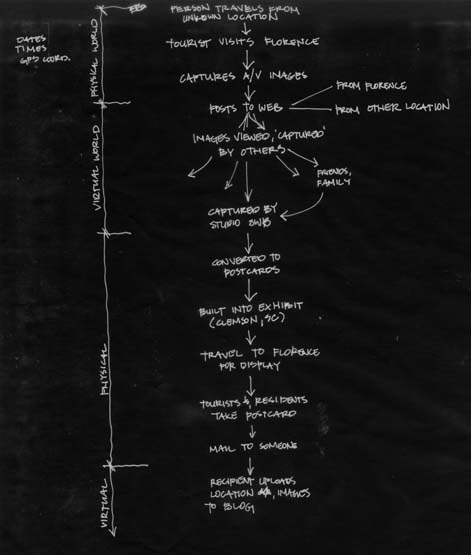 PERSON TRAVELS FROM
UNKNOWN LOCATION
DATES
TIMES
GPS COORD.
PHYSICAL WORLD
TOURIST VISITS FLORENCE
CAPTURES A/V IMAGES
POSTS TO WEB
FROM FLORENCE
FROM OTHER LOCATION
VIRTUAL WORLD
IMAGES VIEWED, 'CAPTURED'
BY OTHERS
FRIENDS,
FAMILY
CAPTURED BY
STUDIO
CONVERTED TO
POSTCARDS
PHYSICAL
BUILT INTO EXHIBIT
(CLEMSON, SC)
TRAVEL TO FLORENCE
FOR DISPLAY
TOURISTS & RESIDENTS
TAKE POSTCARD
MAIL TO SOMEONE
VIRTUAL
RECIPIENT UPLOADS
LOCATION & IMAGES
TO BLOG